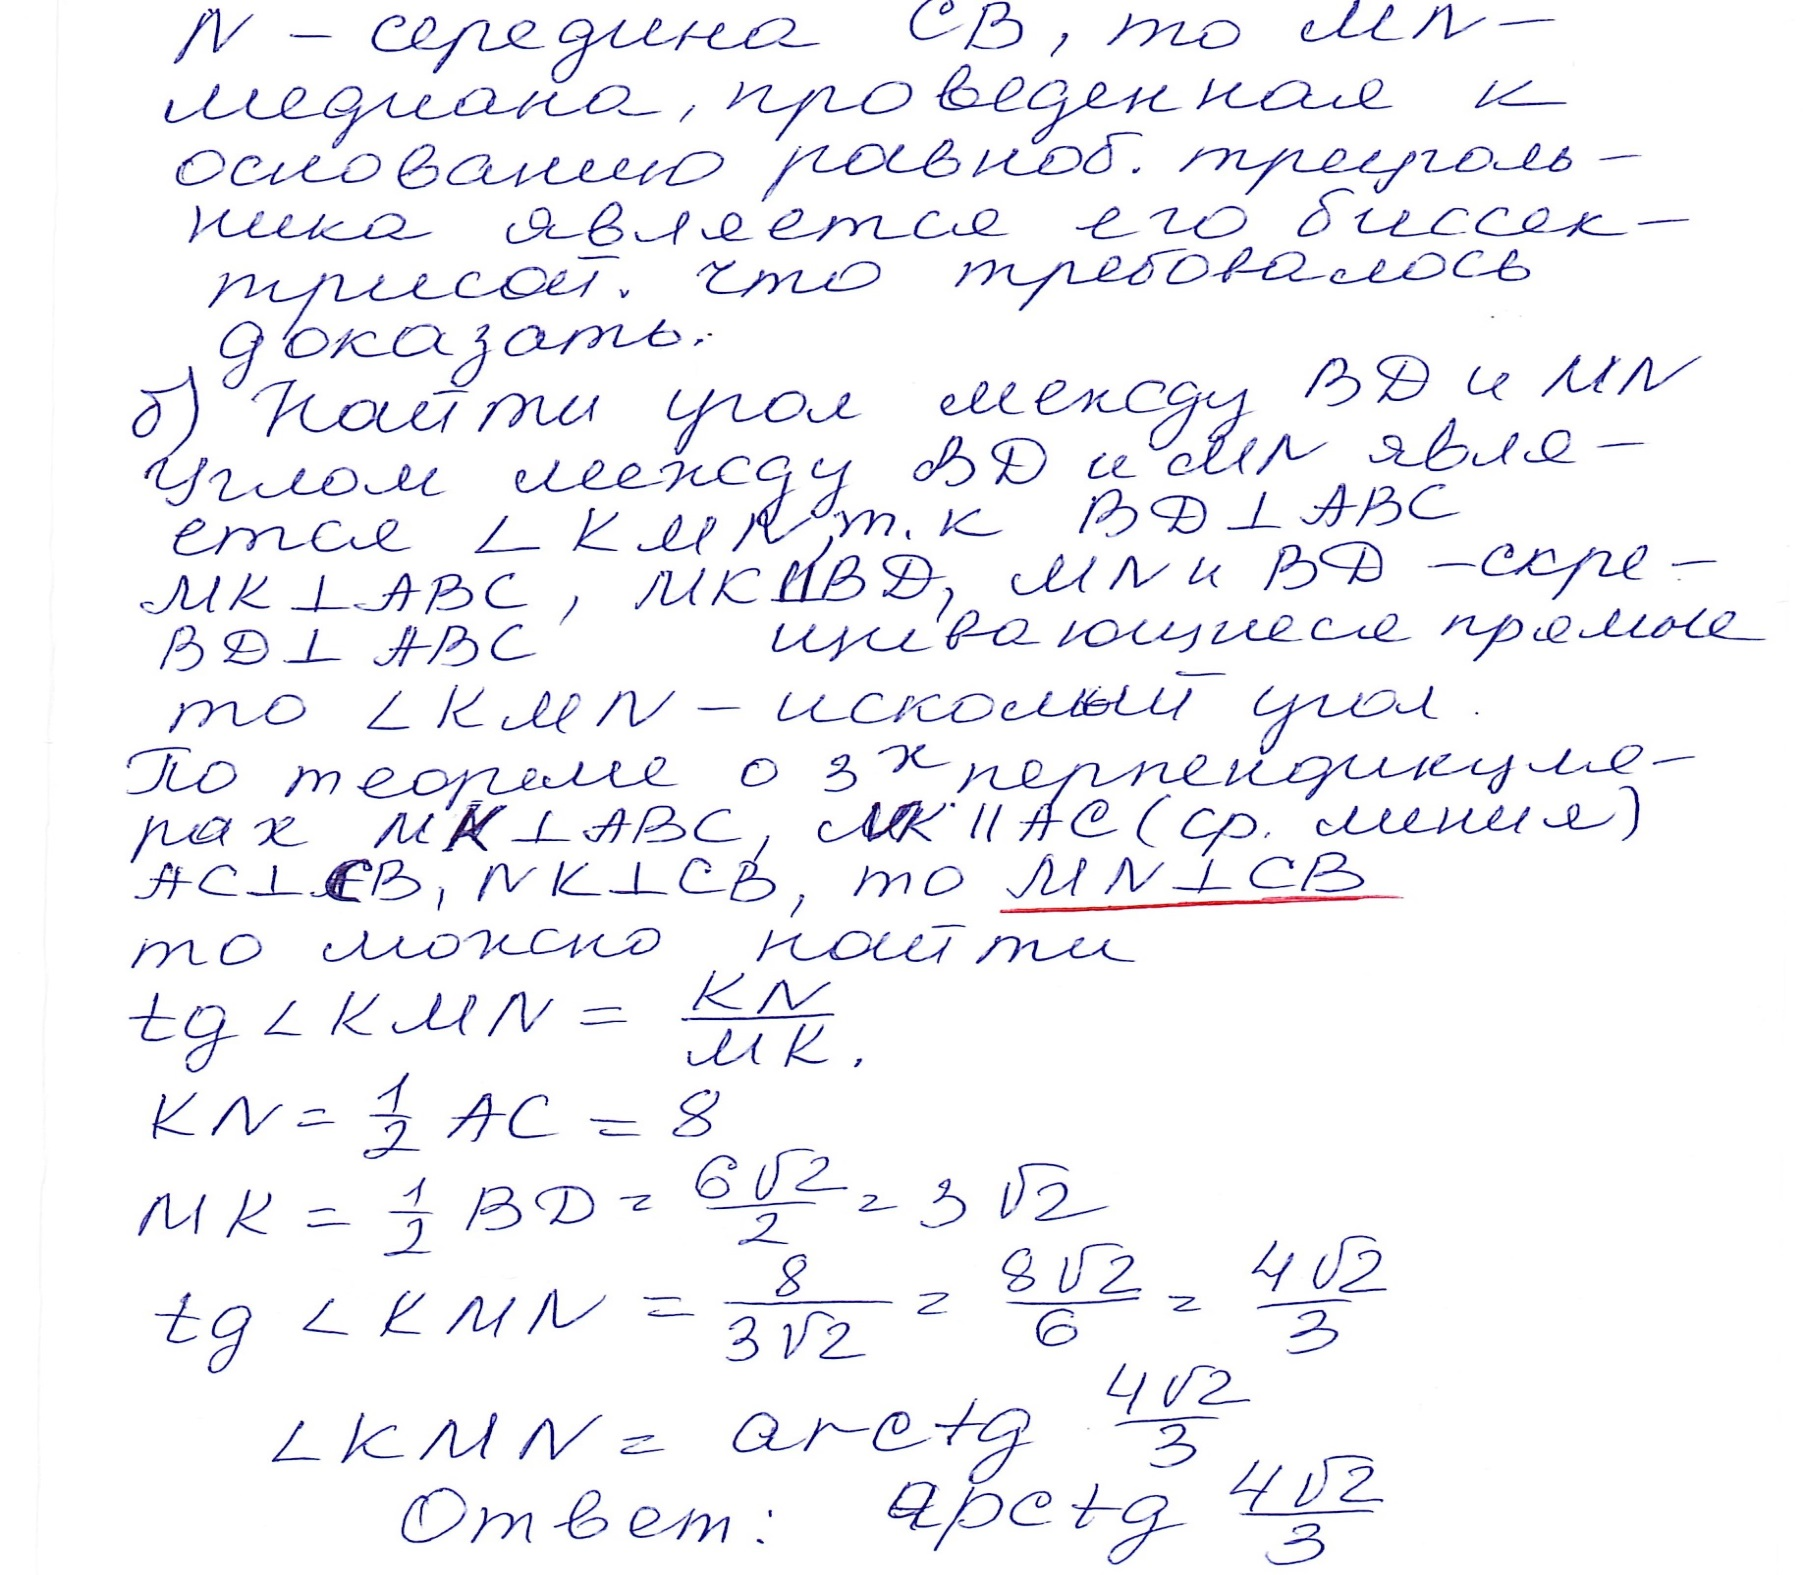 N – середина СВ, то MN –
медиана, проведенная к
основанию равноб. треуголь-
ника является его биссек-
трисой. Что требовалось
доказать.
б) Найти угол между BD и MN
Углом между BD и MN явля-
ется ∠KMN, т.к BD⊥ABC
MK⊥ABC, MK||BD, MN и BD – скре-
BD⊥ABC щивающиеся прямые
то ∠KMN – искомый угол.
По теореме о 3х перпендикуля-
рах MK⊥ABC, NK||AC (ср. линия)
AC⊥CB, NK⊥CB, то MN⊥CB
то можно найти
tg∠KMN = KN/MK.
KN = 1/2 AC = 8
MK = 1/2 BD = 6√2/2 = 3√2
tg∠KMN = 8/3√2 = 8√2/6 = 4√2/3
∠KMN = arctg 4√2/3
Ответ: арсtg 4√2/3